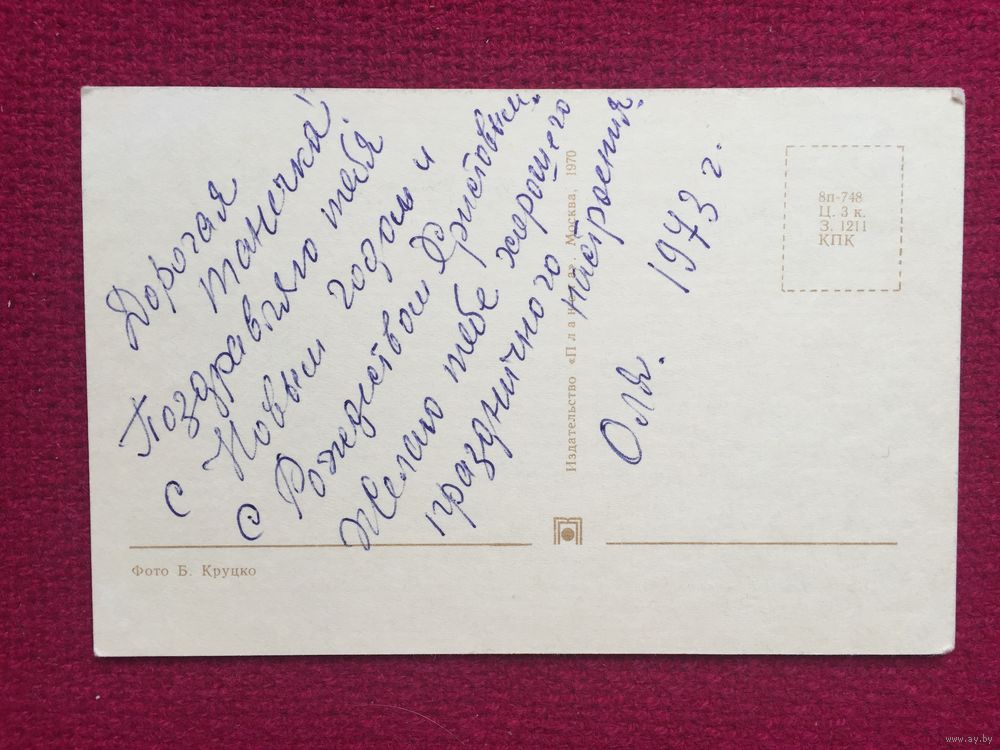 Дорогая
Танечка!
Поздравляю тебя
с Новым годом и
с Рождеством Христовым.
Желаю тебе хорошего
праздничного
настроения.
Оля.
1973 г.
Издательство «Планета». Москва, 1970
8п-748
Ц. 3 к.
З. 1211
КПК
Фото Б. Круцко
www.ay.by